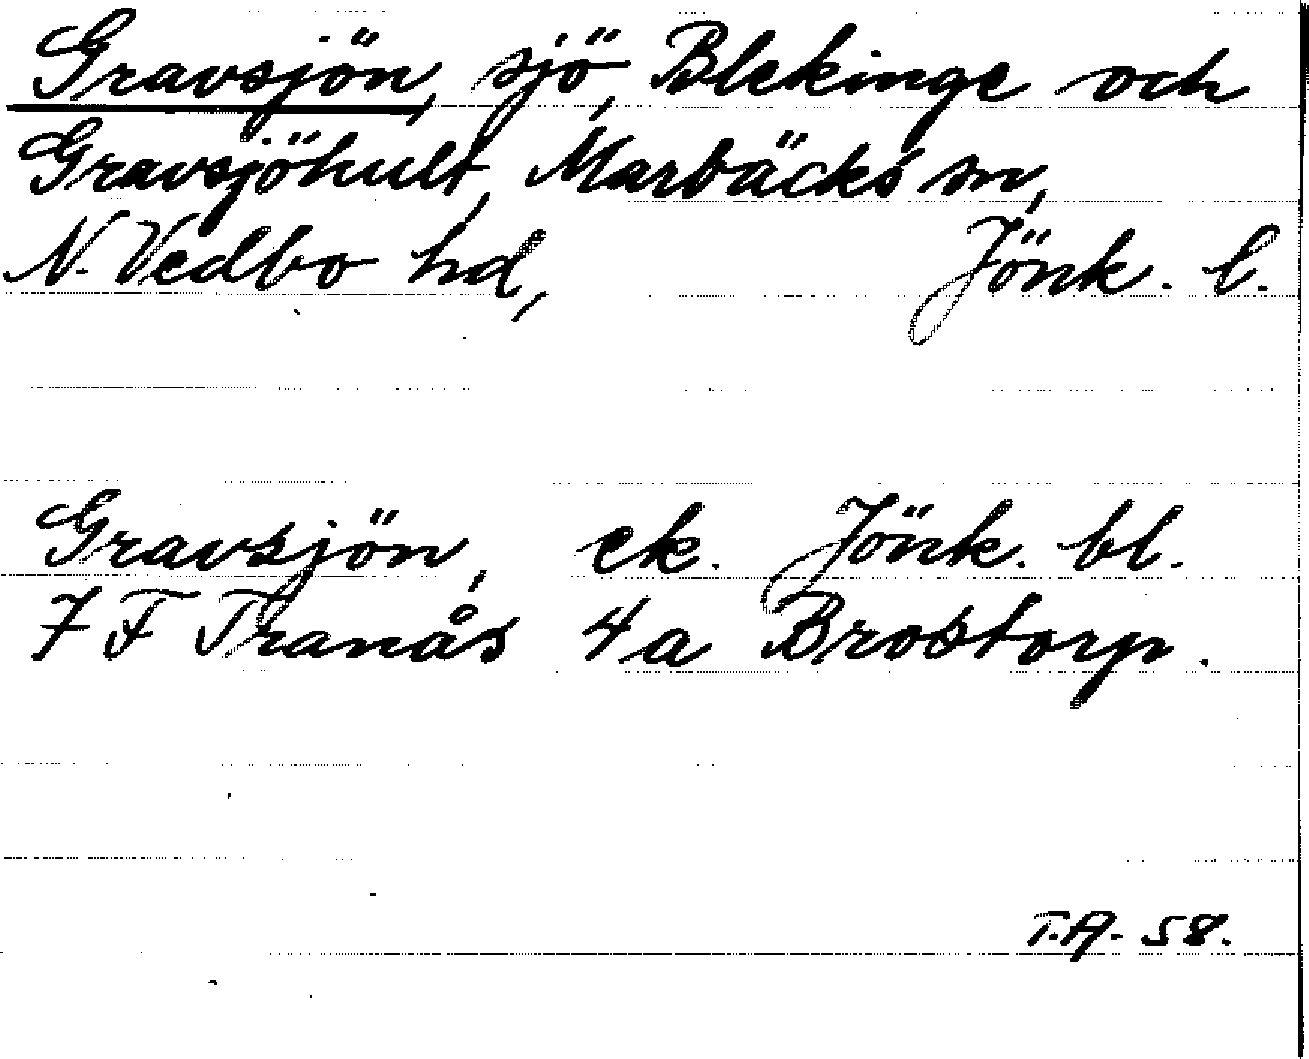 Gravsjön, sjö, Blekinge och
Gravsjöhult, Marbäcks sn,
N. Vedbo hd, Jönk. l.
Gravsjön, ek. Jönk. bl.
7 F Tranås 4a Brostorp.
T.A. 58.